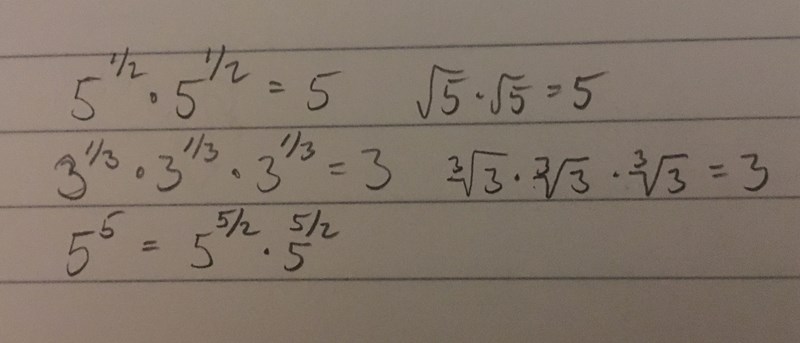 5^{1/2} · 5^{1/2} = 5    √5 · √5 = 5
3^{1/3} · 3^{1/3} · 3^{1/3} = 3    ∛3 · ∛3 · ∛3 = 3
5^5 = 5^{5/2} · 5^{5/2}